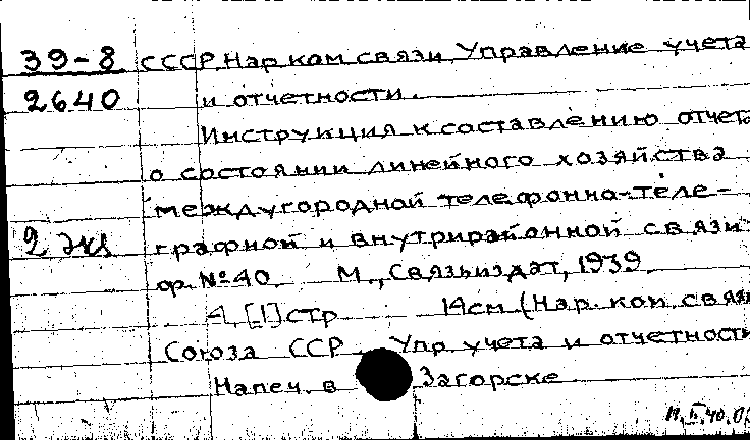 39-8 СССР. Нар. ком. связи. Управление учета
2640 и отчетности.
Инструкция к составлению отчета
о состоянии линейного хозяйства
междугородной телефонно-теле-
2 экз графной и внутрирайонной связи
ф. № 40. М., Связьиздат, 1939.
4, [1] стр 14 см (Нар. ком. связи
Союза ССР. Упр. учета и отчетности
Напеч. в Загорске